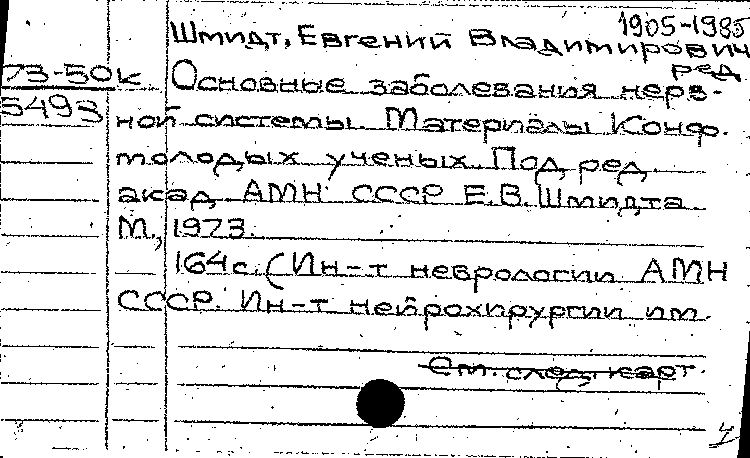 1905-1985
Шмидт, Евгений Владимирович
ред.
73-50к Основные заболевания нерв-
5493 ной системы. Материалы Конф.
молодых ученых. Под ред.
акад. АМН СССР Е.В. Шмидта.
М., 1973.
164с. (Ин-т неврологии АМН
СССР. Ин-т нейрохирургии им.
См. след. карт.